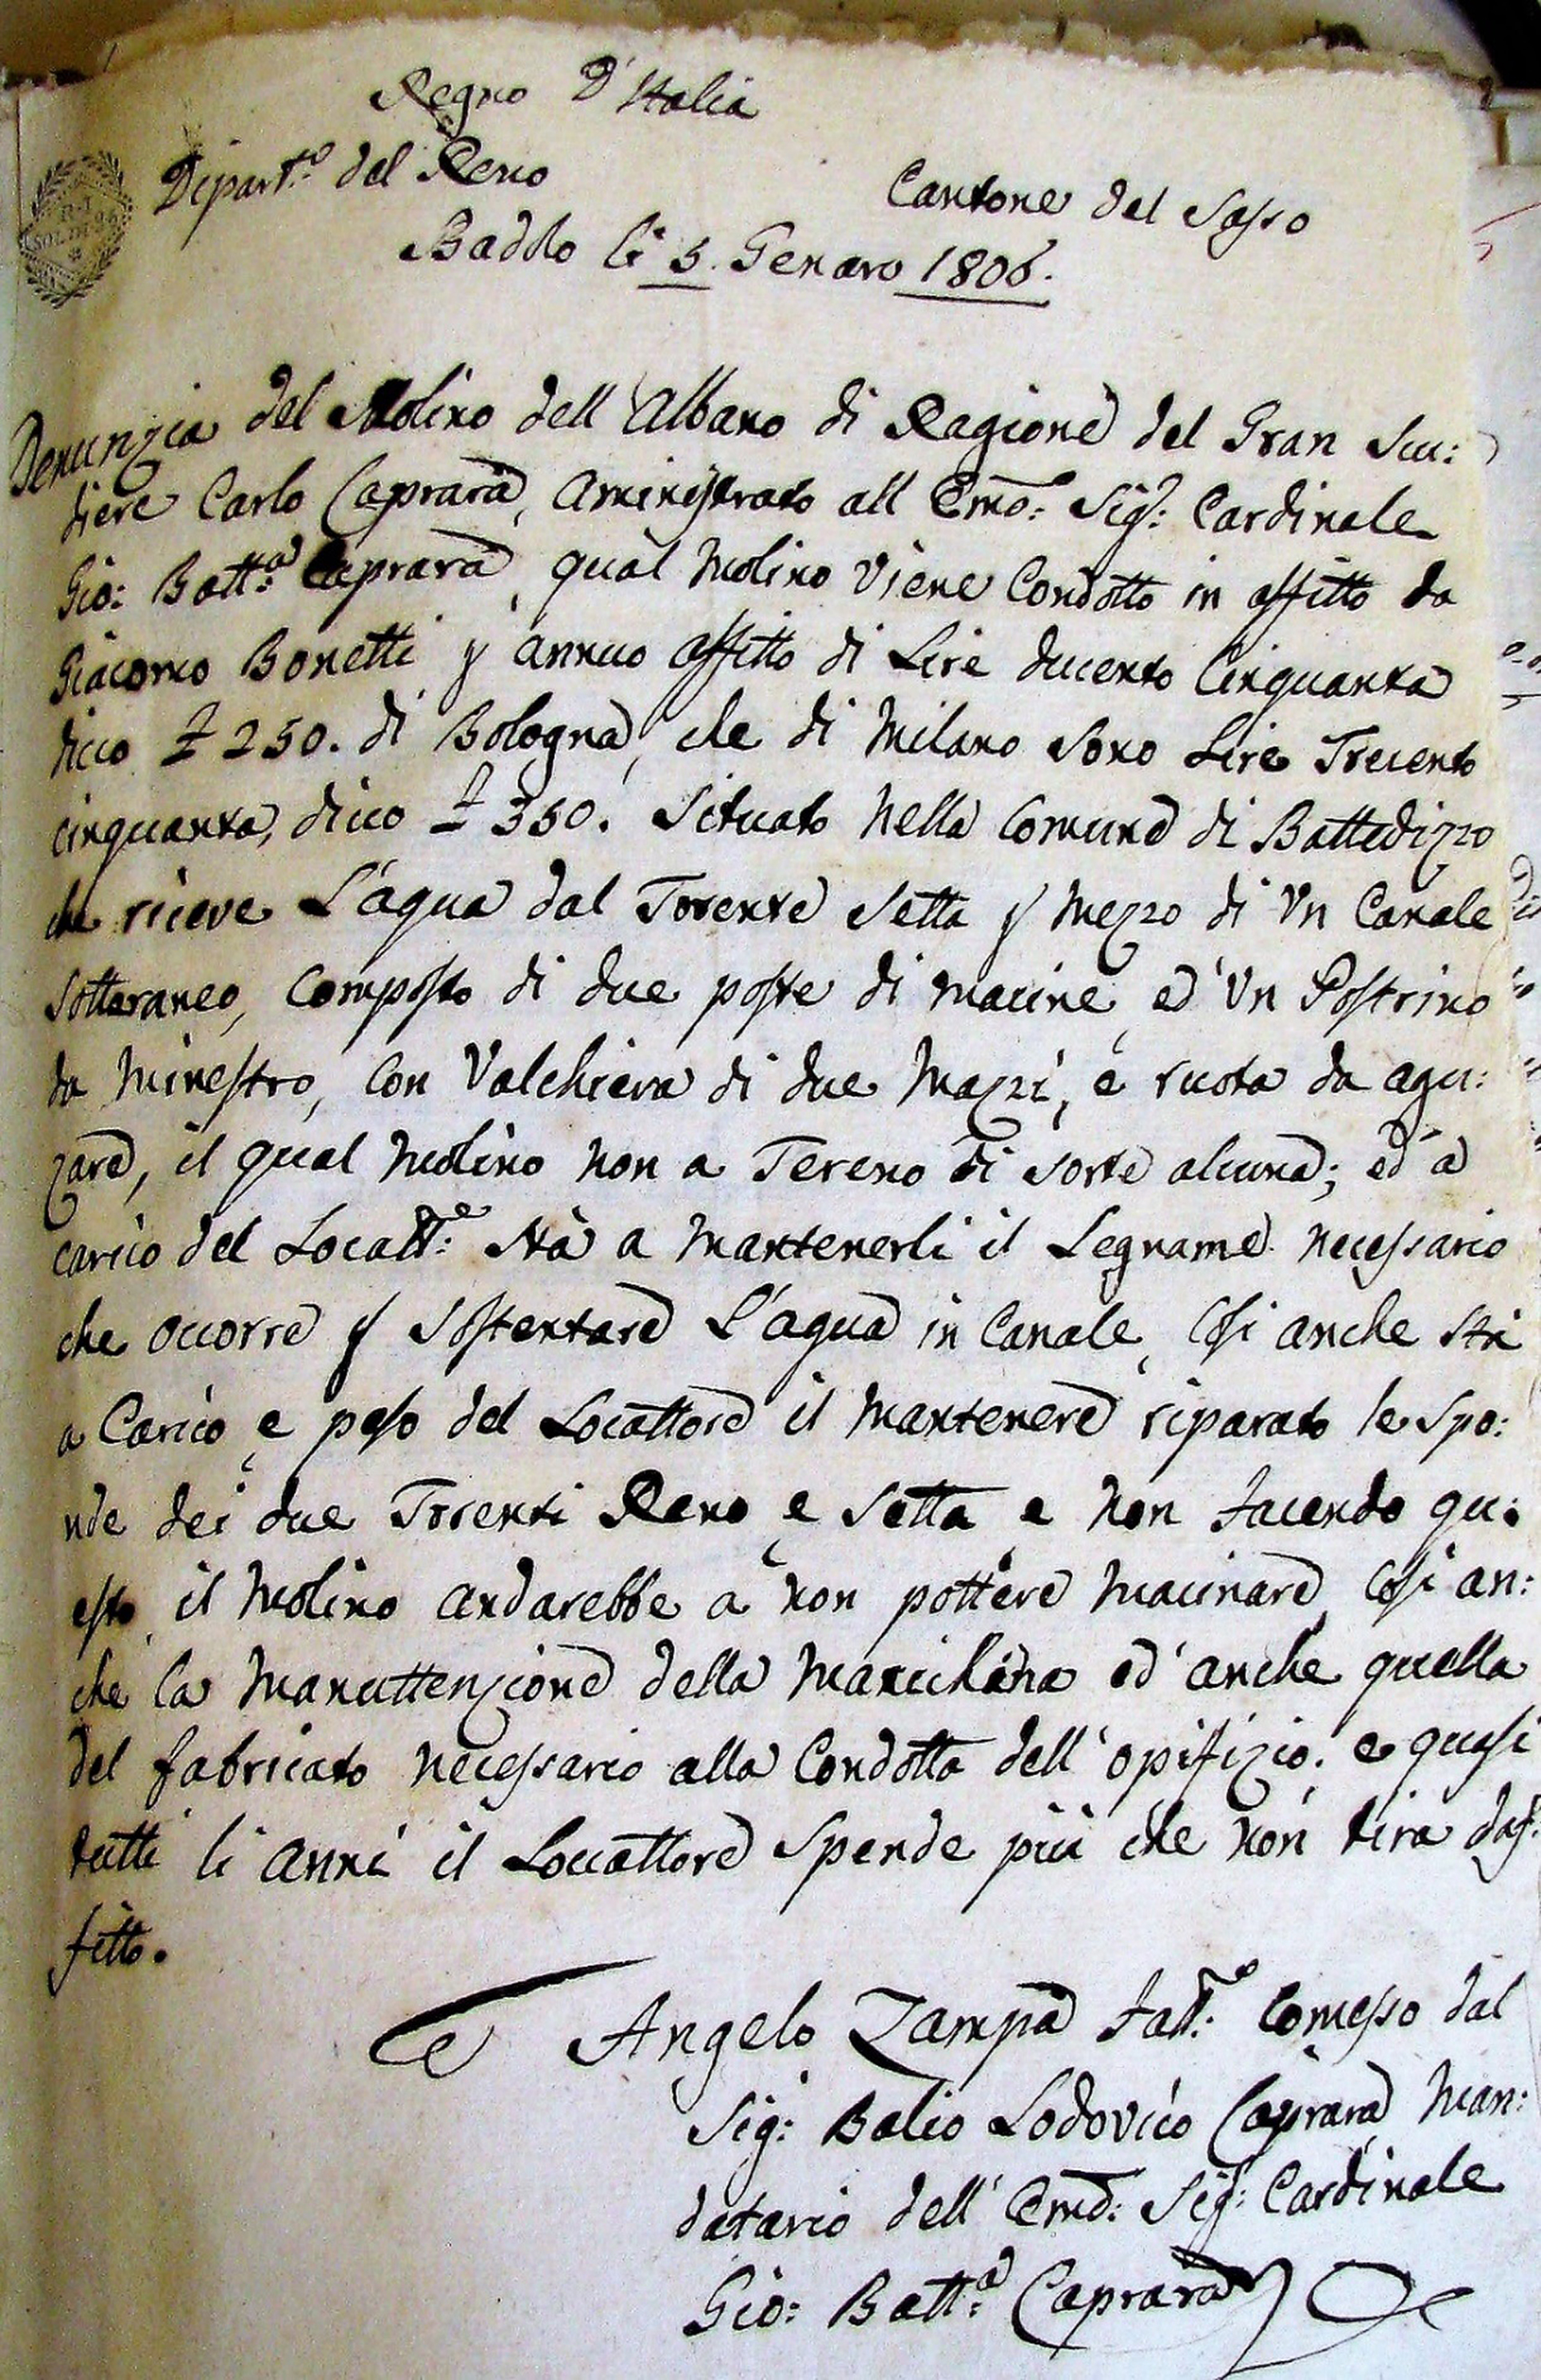 Regno D'Italia
Dipart.º del Reno
Cantone del Sasso
Baddlo li 5. Genaro 1806.
R. I.
SOLDI
Denunzia del Molino dell'Albano di Ragione del Gran Scu:
diere Carlo Caprara, aministrato all Emo: Sig.: Cardinale
Gio: Batt:ª Caprara, qual Molino Viene Condotto in affitto da
Giacomo Bonetti p annuo affitto di Lire ducento Cinquanta
dico £ 250. di Bologna, che di Milano sono Lire Trecento
cinquanta, dico £ 350. Situato nella Comune di Battedizzo
che riceve L'aqua dal Torente Setta p mezzo di Un Canale
Sotteraneo, Composto di due poste di macine, ed'Un Postrino
da Minestro, Con Valchiera di due Mazzi, e ruota da agu:
zare, il qual Molino non a Tereno di sorte alcuna; ed a
carico del Locatt:e Stà a mantenerli il Legname necessario
che occorre p Sostentare L'aqua in Canale, Cosi anche Stà
a Carico e peso del Locattore il mantenere riparato le Spo:
nde dei due Torenti Reno e Setta e non facendo qu:
esto il Molino andarebbe a non pottere macinare, Cosi an:
che la manuttenzione della Machina ed'anche quella
del fabricato necessario alla Condotta dell'opifizio: e quasi
tutti li anni il Locattore Spende più che non tira d'af:
fitto.
Angelo Zampa Fatt:e Comesso dal
Sig: Balio Lodovico Caprara Man:
datario dell'Emo: Sig: Cardinale
Gio: Batt:ª Caprara